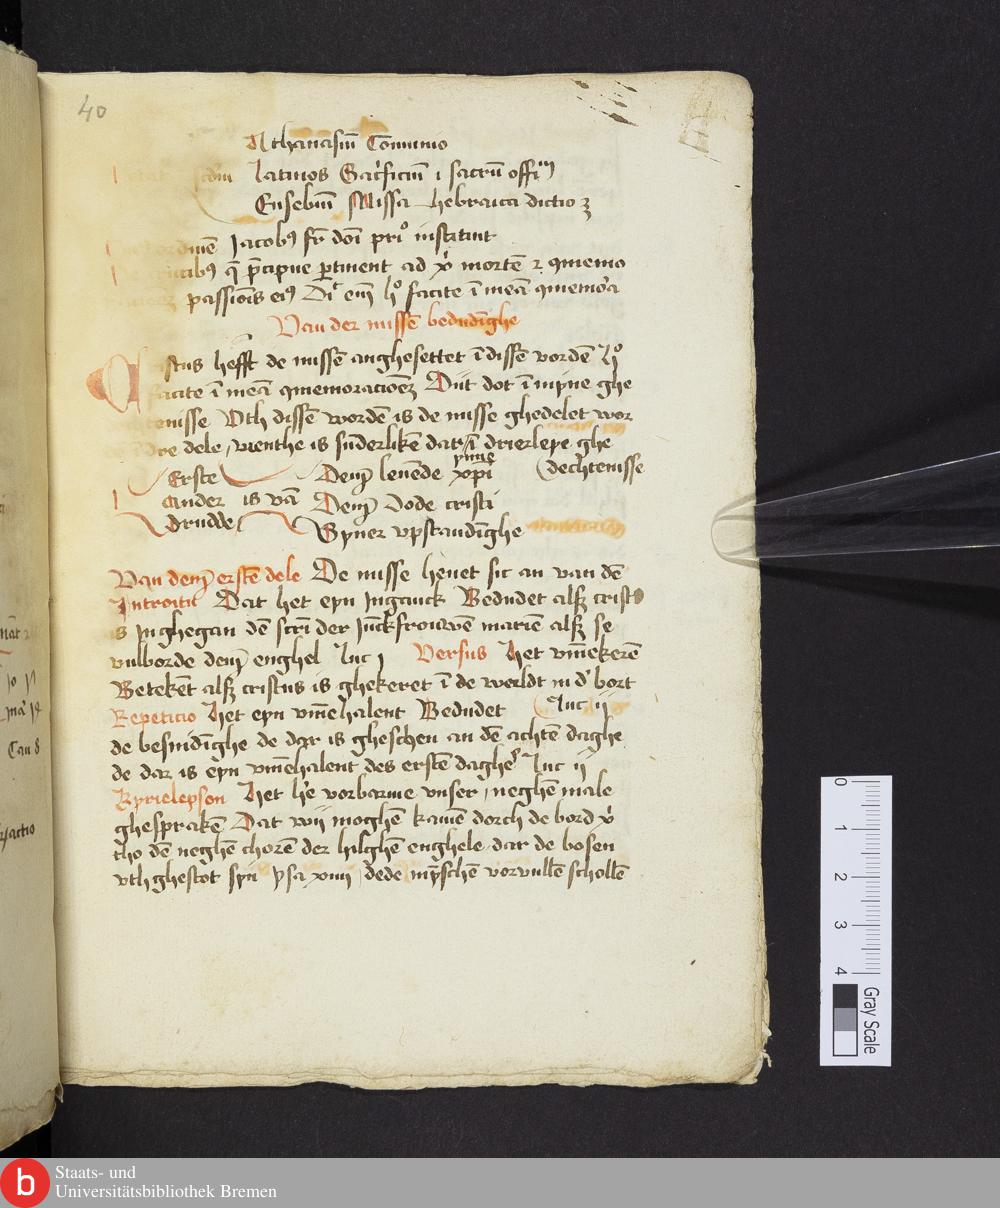 40
Athanasiū Cōmunio
scdm latinos Sac̓ficiū i sacrū offi
Eusebiū Missa hebraica dictio ꝫ
Jacobꝰ fr̄ dn̄i prīº instituit
q̄ p̄cipue ꝑtinent ad xp̄i mortē ⁊ ꝯmemo
passiōis eiꝰ Dic̄ em̄ lº facite ī meā ꝯmemor̓a
Uan der missē bedudīghe
istus hefft de missē anghesettet ī dissē wordē lº
facite ī meā ꝯmemoracioēꝫ Dut dot ī myne ghe
tenisse Uth dissē wordē is de misse ghedelet wor
dre dele, wenthe is sūderlikē dar ī drierleye ghe
Erste Dem̄ leuēde xp̄i dechtenisse
ander is vā Dem̄ dode cristi
drudde Syner vpstandīghe
Uan dem̄ erstē dele De misse heuet sic an van dē
Introitu Dat het eyn Inganck Bedudet alsꝫ cristꝰ
is Inghegan dē scrī der Jūckfrouwē mariē alsꝫ se
vulborde dem̄ enghel luc j Uersus het vm̄ekerē
Betekēt alsꝫ cristus is ghekeret ī de werldt in d̓ bort
Repeticio het eyn vm̄ehalent Bedudet luc ij
de besnidīghe de dar is gheschen an dē achtē daghe
de dar is eyn vm̄ehalent des erstē daghes luc ij
Kyrieleyson het he̓ vorbarme vnser, neghē male
ghesprakē Dat wij moghē kamē dorch de bord xp̄i
tho dē neghē chorē der hilghē enghele, dar de bosen
vth ghestot syn ysa xiiij, dede mȳschē vorvullē schollē
0 1 2 3 4
Gray Scale
b
Staats- und
Universitätsbibliothek Bremen